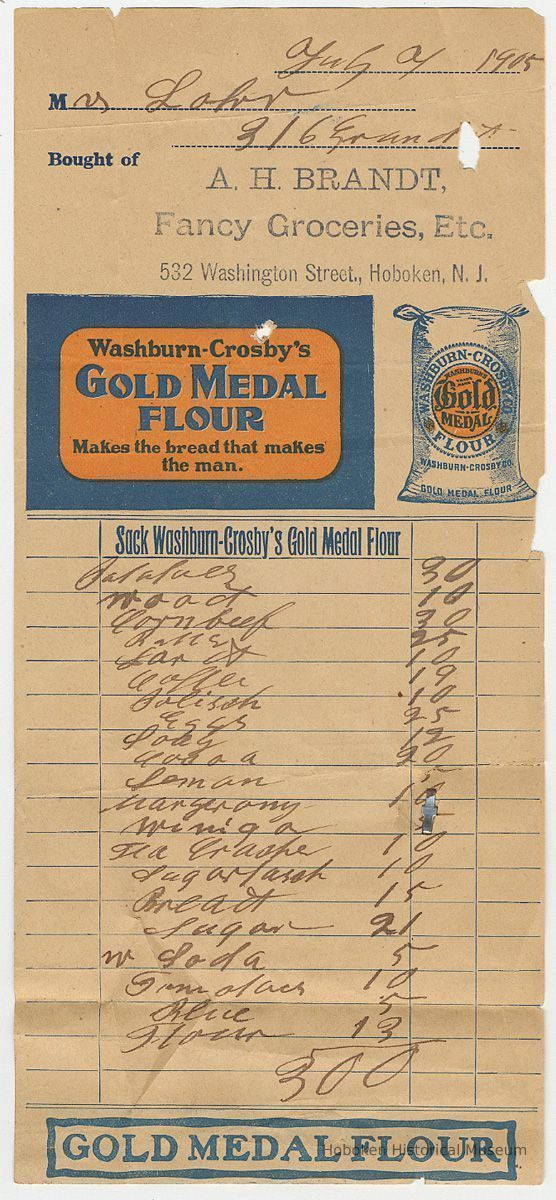 July 7 1905
Mrs Lohr
316 Grand St
Bought of
A. H. BRANDT,
Fancy Groceries, Etc.
532 Washington Street., Hoboken, N. J.
Washburn-Crosby's
GOLD MEDAL
FLOUR
Makes the bread that makes
the man.
WASHBURN-CROSBY CO.
WASHBURN'S
Gold
MEDAL
FLOUR
WASHBURN-CROSBY CO.
GOLD MEDAL FLOUR
Sack Washburn-Crosby's Gold Medal Flour
Potatoes 30
wood 10
Cornbeef 30
25
Lard 10
Coffee 19
Polisch 10
Eggs 25
Soap 12
Cocoa 20
Lemon
10
5
Tea 10
Sugar 10
Breatt 15
Sugar 21
w Soda 5
Tomatoes 10
Blue 5
Flour 13
300
GOLD MEDAL FLOUR
Hoboken Historical Museum